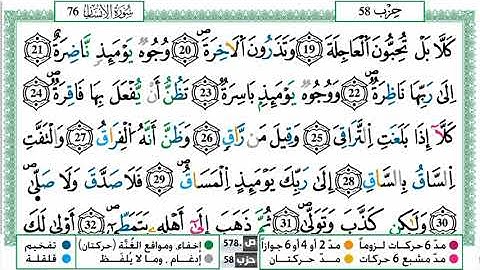 حِزْب 58 سُورَةُ الإِنسَانِ 76
كَلَّا بَلْ تُحِبُّونَ اَ۬لْعَاجِلَةَ 19 وَتَذَرُونَ اَ۬لَاخِرَةَ 20 وُجُوهٌ يَوْمَئِذٍ نَّاضِرَةٌ 21
اِلَىٰ رَبِّهَا نَاظِرَةٌ 22 وَوُجُوهٌ يَوْمَئِذٍ بَاسِرَةٌ 23 تَظُنُّ أَنْ يُّفْعَلَ بِهَا فَاقِرَةٌ 24
كَلَّآ إِذَا بَلَغَتِ اِ۬لتَّرَاقِيَ 25 وَقِيلَ مَن رَّاقٍ 26 وَظَنَّ أَنَّهُ اُ۬لْفِرَاقُ 27 وَالْتَفَّتِ
اِ۬لسَّاقُ بِالسَّاقِ 28 إِلَىٰ رَبِّكَ يَوْمَئِذٍ اِ۬لْمَسَاقُ 29 فَلَا صَدَّقَ وَلَا صَلَّىٰ
30 وَلَٰكِن كَذَّبَ وَتَوَلَّىٰ 31 ثُمَّ ذَهَبَ إِلَىٰٓ أَهْلِهِۦ يَتَمَطَّىٰٓ 32 أَوْلَىٰ لَكَ
مدّ 6 حركات لزوماً مدّ 2 أو 4 أو 6 جوازاً ص 578 إخفاء، ومواقع الغُنَّة (حركتان) تفخيم
مدّ مشبع 6 حركات مدّ حركتان حزب 58 إدغام، وما لا يُلفَظ قلقلة